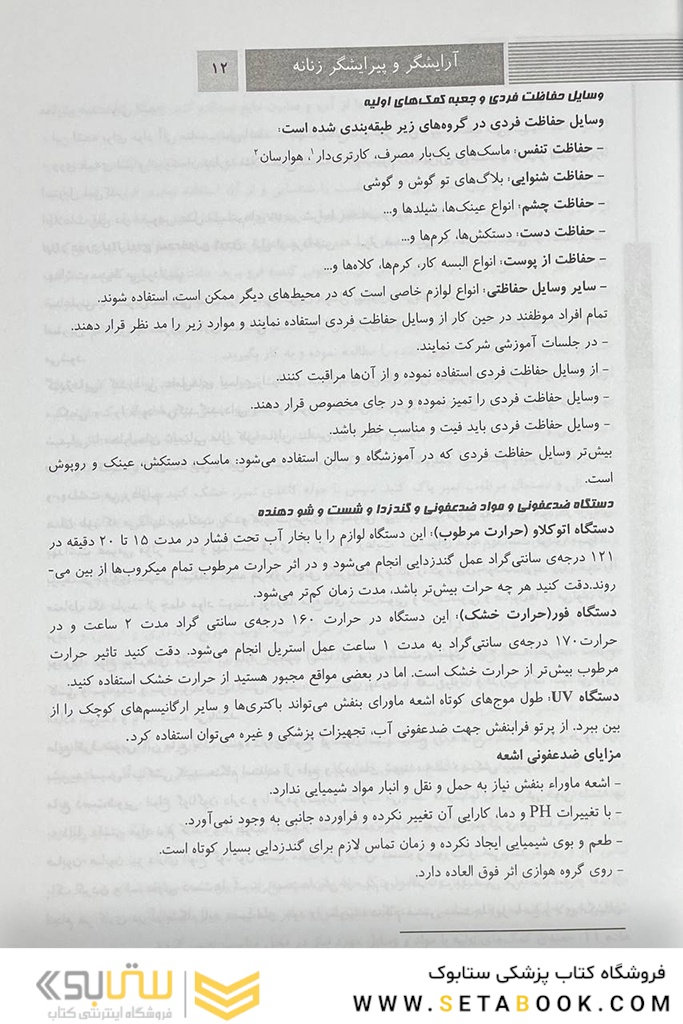 آرایشگر و پیرایشگر زنانه
۱۲
وسایل حفاظت فردی و جعبه کمک‌های اولیه
وسایل حفاظت فردی در گروه‌های زیر طبقه‌بندی شده است:
– حفاظت تنفس: ماسک‌های یک‌بار مصرف، کارتری‌دار۱، هوارسان۲
– حفاظت شنوایی: بلاگ‌های تو گوش و گوشی
– حفاظت چشم: انواع عینک‌ها، شیلدها و...
– حفاظت دست: دستکش‌ها، کرم‌ها و...
– حفاظت از پوست: انواع البسه کار، کرم‌ها، کلاه‌ها و...
– سایر وسایل حفاظتی: انواع لوازم خاصی است که در محیط‌های دیگر ممکن است، استفاده شوند.
تمام افراد موظفند در حین کار از وسایل حفاظت فردی استفاده نمایند و موارد زیر را مد نظر قرار دهند.
– در جلسات آموزشی شرکت نمایند.
– از وسایل حفاظت فردی استفاده نموده و از آن‌ها مراقبت کنند.
– وسایل حفاظت فردی را تمیز نموده و در جای مخصوص قرار دهند.
– وسایل حفاظت فردی باید فیت و مناسب خطر باشد.
بیش‌تر وسایل حفاظت فردی که در آموزشگاه و سالن استفاده می‌شود: ماسک، دستکش، عینک و روپوش
است.
دستگاه ضدعفونی و مواد ضدعفونی و گندزدا و شست و شو دهنده
دستگاه اتوکلاو (حرارت مرطوب): این دستگاه لوازم را با بخار آب تحت فشار در مدت ۱۵ تا ۲۰ دقیقه در
۱۲۱ درجه‌ی سانتی‌گراد عمل گندزدایی انجام می‌شود و در اثر حرارت مرطوب تمام میکروب‌ها از بین می-
روند.دقت کنید هر چه حرات بیش‌تر باشد، مدت زمان کم‌تر می‌شود.
دستگاه فور(حرارت خشک): این دستگاه در حرارت ۱۶۰ درجه‌ی سانتی گراد مدت ۲ ساعت و در
حرارت۱۷۰ درجه‌ی سانتی‌گراد به مدت ۱ ساعت عمل استریل انجام می‌شود. دقت کنید تاثیر حرارت
مرطوب بیش‌تر از حرارت خشک است. اما در بعضی مواقع مجبور هستید از حرارت خشک استفاده کنید.
دستگاه UV: طول موج‌های کوتاه اشعه ماورای بنفش می‌تواند باکتری‌ها و سایر ارگانیسم‌های کوچک را از
بین ببرد. از پرتو فرابنفش جهت ضدعفونی آب، تجهیزات پزشکی و غیره می‌توان استفاده کرد.
مزایای ضدعفونی اشعه
– اشعه ماوراء بنفش نیاز به حمل و نقل و انبار مواد شیمیایی ندارد.
– با تغییرات PH و دما، کارایی آن تغییر نکرده و فراورده جانبی به وجود نمی‌آورد.
– طعم و بوی شیمیایی ایجاد نکرده و زمان تماس لازم برای گندزدایی بسیار کوتاه است.
– روی گروه هوازی اثر فوق العاده دارد.
فروشگاه کتاب پزشکی ستابوک
WWW.SETABOOK.COM
ستابوک
فروشگاه اینترنتی کتاب